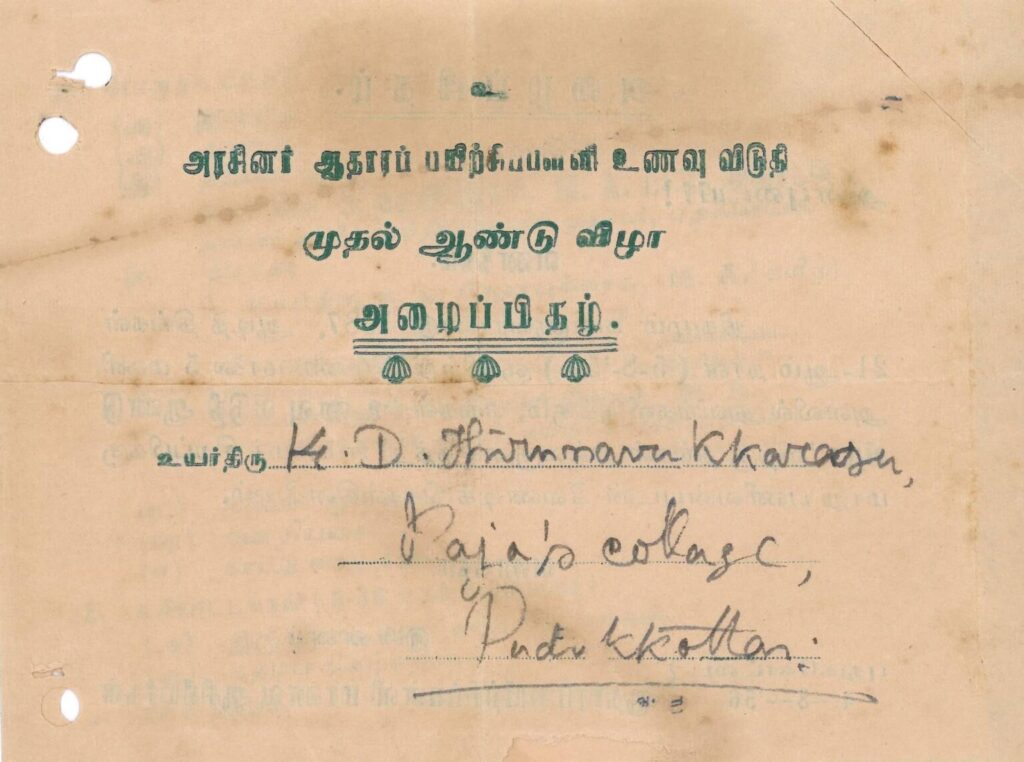 உ
அரசினர் ஆதாரப் பயிற்சிப்பள்ளி உணவு விடுதி
முதல் ஆண்டு விழா
அழைப்பிதழ்.
உயர்திரு K. D. Thirunavukkarasu,
Raja's college,
Pudukkottai.